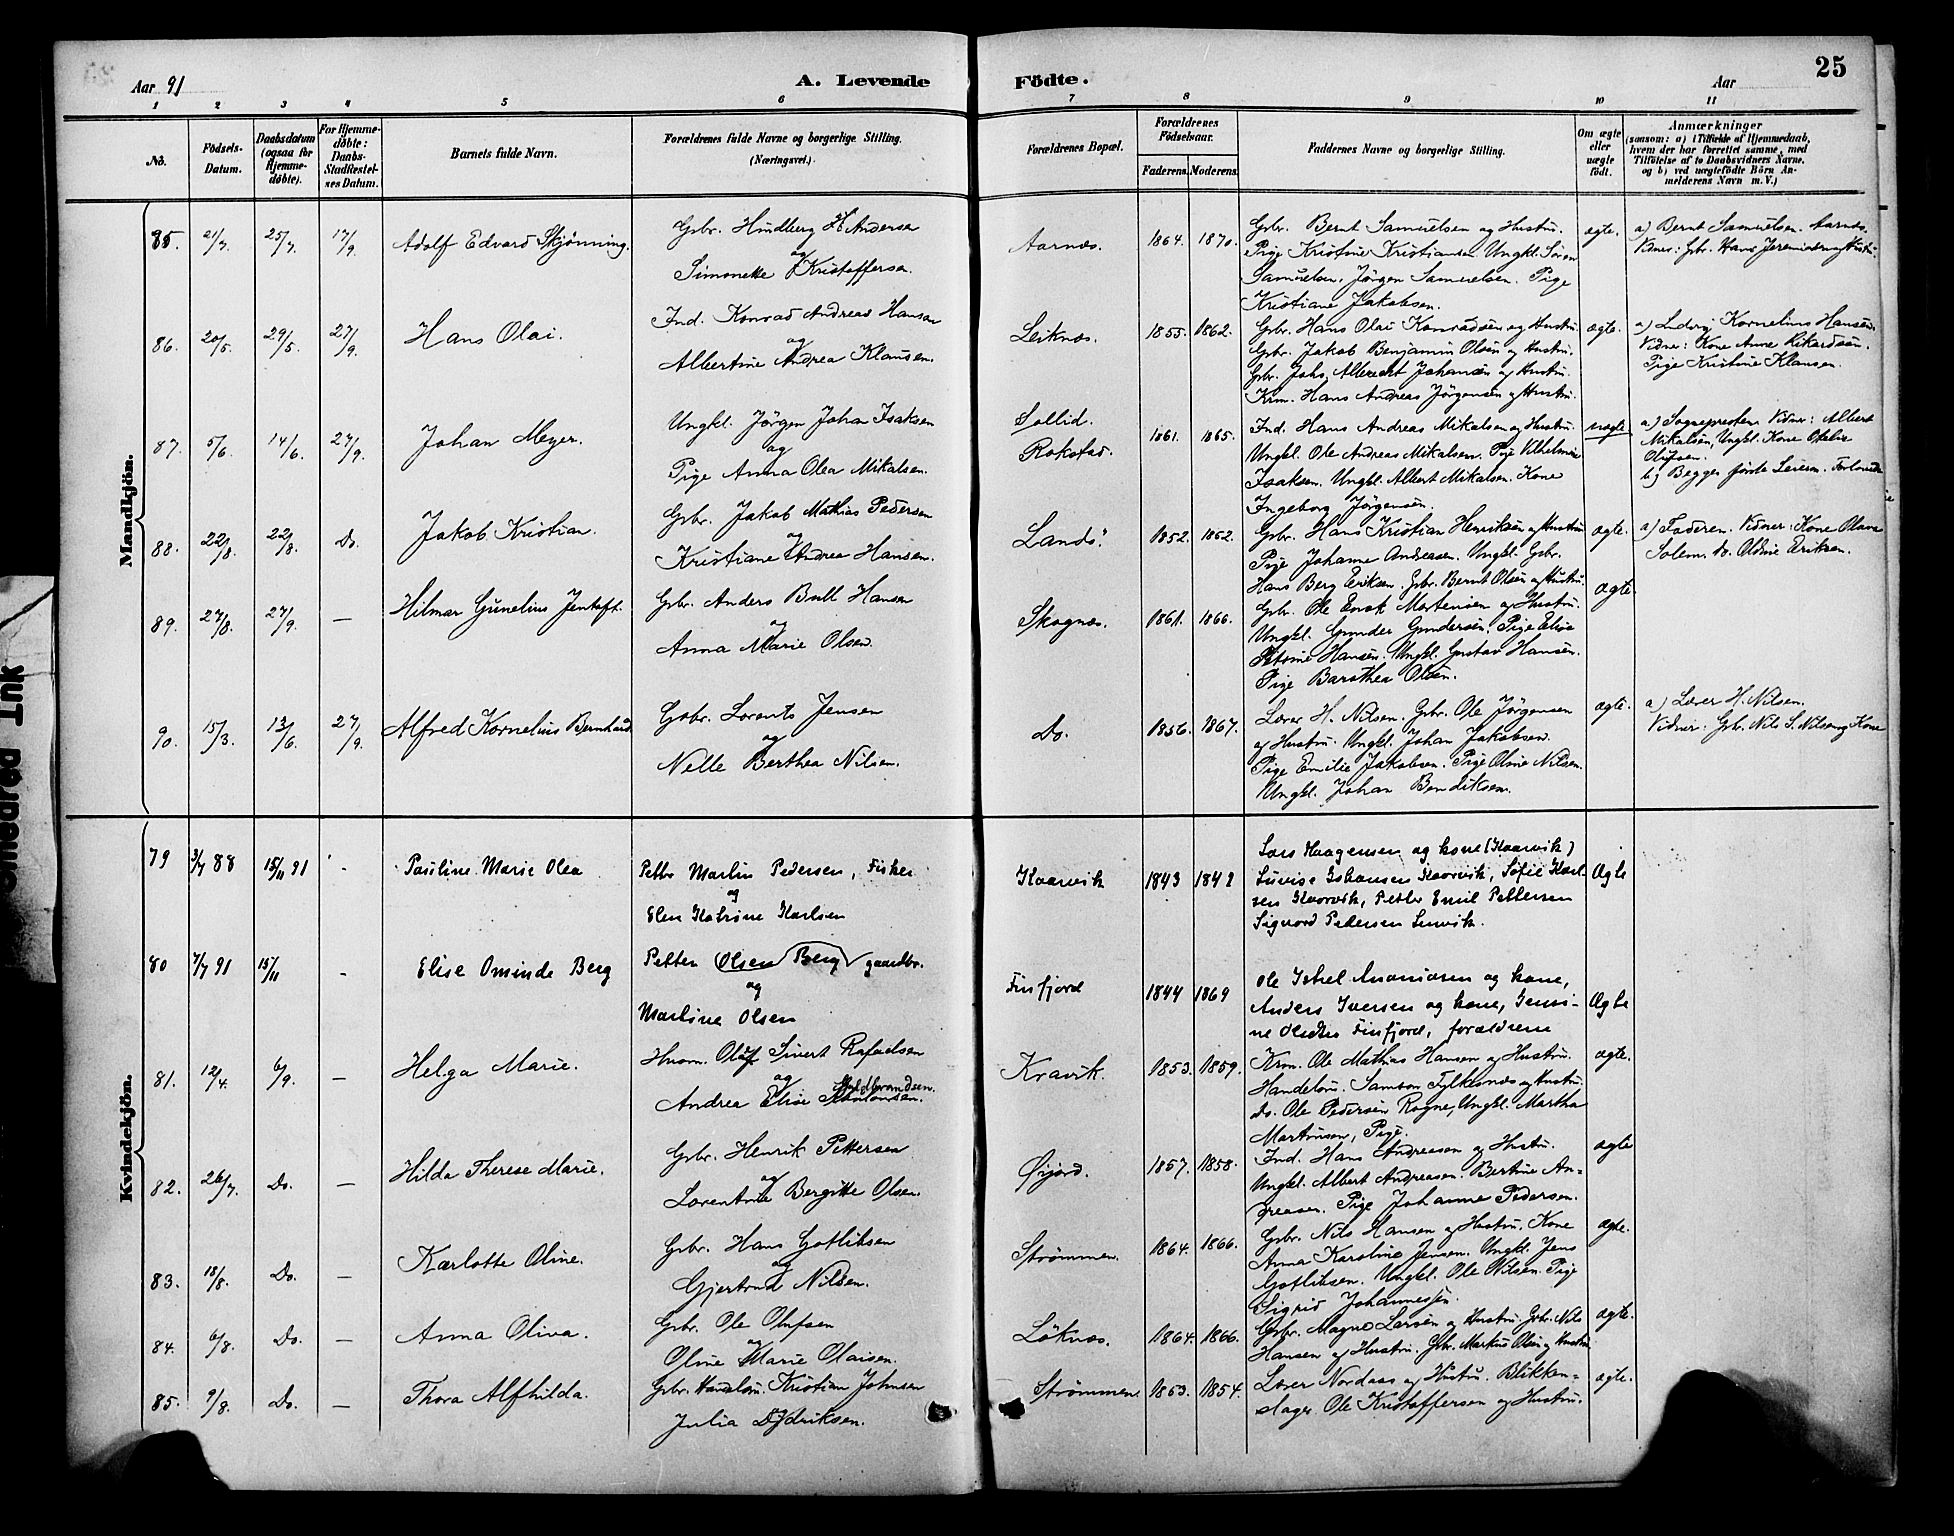 Aar 91 A. Levende Födte. Aar 25
1 2 3 4 5 6 7 8 9 10 11
No. Födsels-Datum. Daabsdatum (ogsaa for Hjemmedøbte). For Hjemmedøbte: Daabs-Stadfæstelses Datum. Barnets fulde Navn. Forældrenes fulde Navne og borgerlige Stilling. (Næringsvei.) Forældrenes Bopæl. Forældrenes Födselsaar. Faderens. Moderens. Faddernes Navne og borgerlige Stilling. Om ægte eller uægte födt. Anmærkninger (saasom: a) i Tilfælde af Hjemmedaab, hvem der har forrettet samme, med Tilföielse af to Daabsvidners Navne, og b) ved uægtefödte Börn Anmelderens Navn m. V.)
Mandkjön.
85. 21/7. 25/7 17/9. Adolf Edvard Skjønning. Gbr. Hindberg H Andersen
og
Simonette Kristoffersen. Aarnes. 1864. 1870. Gbr. Bernt Samuelsen og Hustru.
Pige Kristine Kristiansen Ungkl. Sören
Samuelsen, Jörgen Samuelsen. Pige
Kristiane Jakobsen. ægte. a) Bernt Samuelsen. Aarnes.
Vidner: Gbr. Hans Jeremiasen og Hustru.
86. 20/5. 29/5. 27/9. Hans Olai. Ind. Konrad Andreas Hansen
og
Albertine Andrea Klausen. Leiknes. 1855. 1862. Gbr. Hans Olai Konradsen og Hustru
Gbr. Jakob Benjamin Olsen og Hustru.
Gbr. Johs. Albrecht Johansen og Hustru.
Krm. Hans Andreas Jörgensen og Hustru. ægte. a) Ludvig Kornelius Hansen.
Vidner: Kone Anne Rikardsen.
Pige Kristine Klausen.
87. 5/6. 14/6. 27/9. Johan Meyer. Ungkl. Jörgen Johan Isaksen
og
Pige Anna Olea Mikalsen. Sollid.
Rokstad. 1861. 1865. Ind. Hans Andreas Mikalsen og Hustru.
Ungkl. Ole Andreas Mikalsen. Pige Vilhelmine
Isaksen. Ungkl. Albert Mikalsen. Kone
Ingeborg Jörgensen. uægte a) Sognepresten Vidner: Albert
Mikalsen, Ungkl. Kone
Olufsen.
b) Begges første Leierm.
88. 22/8. 22/8. Do. Jakob Kristian. Gbr. Jakob Mathias Pedersen
og
Kristiane Andrea Hansen. Lands. 1852. 1862. Gbr. Hans Kristian Henriksen og Hustru
Pige Johanne Andreasen. Ungkl. Gbr.
Hans Berg Eriksen. Gbr. Bernt Olsen og Hustru. ægte. a) Faderen. Vidner: Kone Olava
Solem. do. Oldine Eriksen.
89. 27/8. 27/9. — Hilmar Gunelius Jentoft. Gbr. Anders Bull Hansen
og
Anna Marie Olsen. Skognes. 1861. 1866. Gbr. Ole Enok Martensen og Hustru.
Ungkl. Gunder Gundersen. Pige Elise
Petrine Hansen. Ungkl. Gustav Hansen.
Pige Barothea Olsen. ægte.
90. 15/3. 13/6. 27/9. Alfred Kornelius Bernhard. Gbr. Lorents Jensen
og
Nelle Berthea Nilsen. Do. 1856. 1867. Lærer H. Nilsen. Gbr. Ole Jörgensen
og Hustru. Ungkl. Johan Jakobsen.
Pige Emilie Jakobsen. Pige Oline Nilsen.
Ungkl. Johan Bendiksen. ægte. a) Lærer H. Nilsen.
Vidner: Gbr. Nils S. Nilsen og Kone
Kvindekjön.
79 3/7 88 15/11 91 - Pauline Marie Olea Petter Martin Pedersen, Fisker
og
Elen Katrine Karlsen Kaarvik 1843 1848 Lars Haagensen og kone (Kaarvik)
Lovise Johansen Kaarvik, Sofie Karl-
sen Kaarvik, Petter Emil Pettersen
Sigvard Pedersen Lenvik. Ægte
80 7/7 91 15/11 - Elise Ominde Berg Petter Olsen Berg gaardbr.
og
Martine Olsen Finfjord 1844 1869 Ole Johel Ananiasen og kone,
Anders Iversen og kone, Jensi-
ne Finfjord, forældrene Ægte
81. 12/4. 6/9. — Helga Marie. Huusm. Oluf Sivert Rafaelsen
og
Andrea Elise Hildbrandsen. Kravik. 1853. 1859. Krm. Ole Mathias Hansen og Hustru.
Handelsm. Samson Fylkesnes og Hustru.
do. Ole Pedersen Rogne, Ungkl. Martha
Martinsen, Pige. ægte.
82. 26/7. Do. — Hilda Therese Marie. Gbr. Henrik Pettersen
og
Lorentine Bergitte Olsen. Øijord. 1857. 1858. Ind. Hans Andreassen og Hustru.
Ungkl. Albert Andreasen. Bertine An-
dreasen. Pige Johanne Pedersen. ægte
83. 18/8. Do. — Karlotte Oline. Gbr. Hans Gotliksen
og
Gjertrud Nilsen. Strömmen. 1864. 1866. Gbr. Nils Hansen og Hustru. Kone
Anna Karoline Jensen. Ungkl. Jens
Gotliksen. Ungkl. Ole Nilsen. Pige
Sigrid Johannessen. ægte.
84. 6/8. Do. — Anna Oliva. Gbr. Ole Olufsen
og
Oline Marie Olaisen. Löknes. 1864. 1866. Gbr. Magnus Larsen og Hustru. Gbr. Nils
Hansen og Hustru. Gbr. Markus Olsen og Hustru ægte.
85. 9/8. Do. — Thora Alfhilda. Gbr. Handelsm. Kristian Johnsen
og
Julia Didriksen. Strömmen. 1853. 1854. Lærer Nordaas og Hustru. Blikken-
slager Ole Kristoffersen og Hustru. ægte.